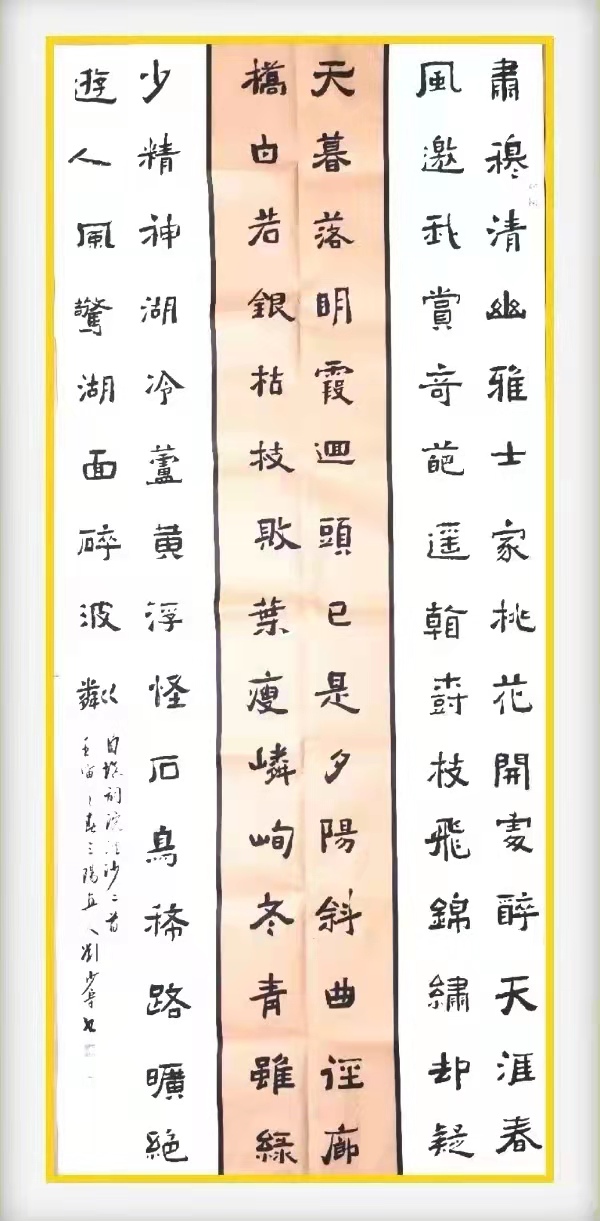 肅穆清幽雅士家桃花開處醉天涯春
風邀我賞奇葩遥看樹枝飛錦繡却疑
天暮落明霞迴頭已是夕陽斜曲徑廊
橋白若銀枯枝敗葉瘦嶙峋冬青雖綠
少精神湖冷蘆黄浮怪石鳥稀路曠絕
遊人風驚湖面碎波粼
自撰詞浣溪沙二首
壬寅之春三陽人劉少書